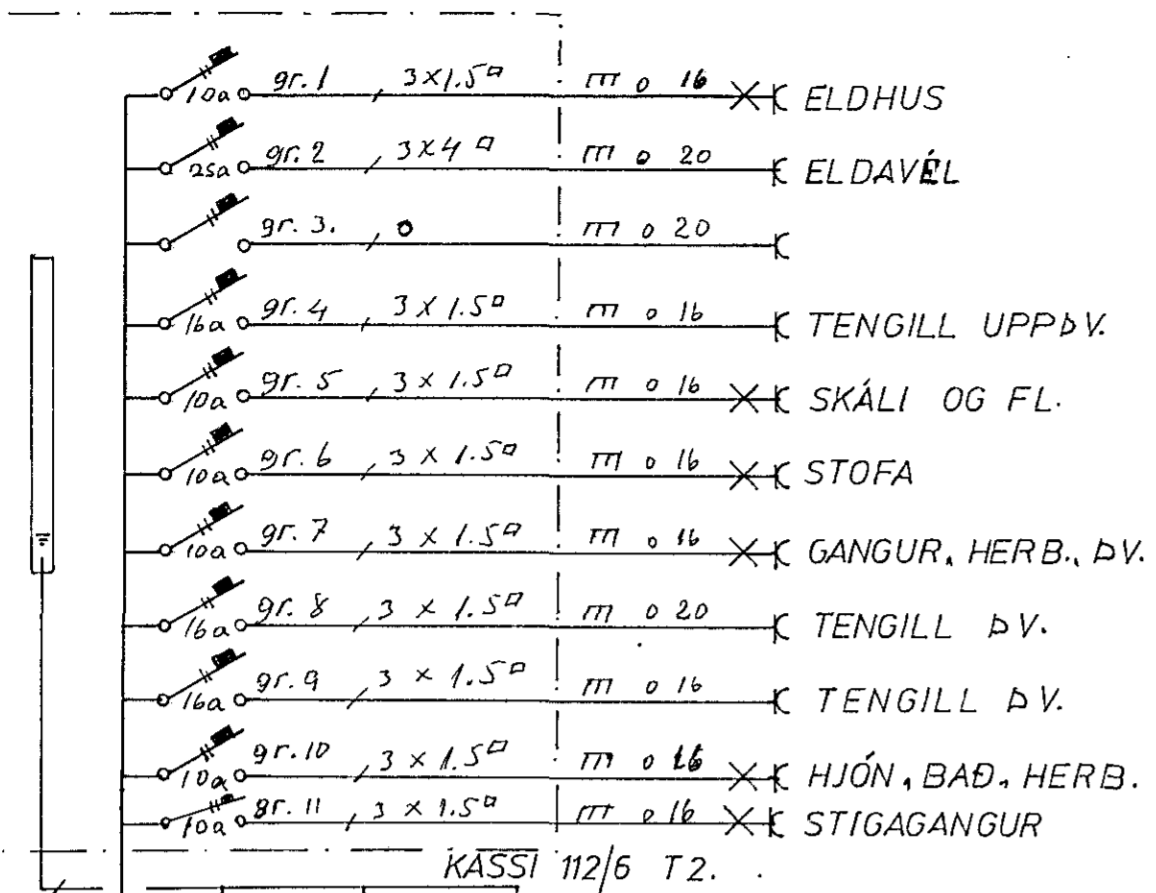 10a gr. 1 3×1.5▫ m o 16 ELDHUS
25a gr. 2 3×4▫ m o 20 ELDAVÉL
gr. 3. 0 m o 20
16a gr. 4 3 × 1.5▫ m o 16 TENGILL UPPÞV.
10a gr. 5 3 × 1.5▫ m o 16 SKÁLI OG FL.
10a gr. 6 3 × 1.5▫ m o 16 STOFA
10a gr. 7 3 × 1.5▫ m o 16 GANGUR, HERB., ÞV.
16a gr. 8 3 × 1.5▫ m o 20 TENGILL ÞV.
16a gr. 9 3 × 1.5▫ m o 16 TENGILL ÞV.
10a gr. 10 3 × 1.5▫ m o 16 HJÓN, BAÐ, HERB.
10a gr. 11 3 × 1.5▫ m o 16 STIGAGANGUR
KASSI 112/6 T2.